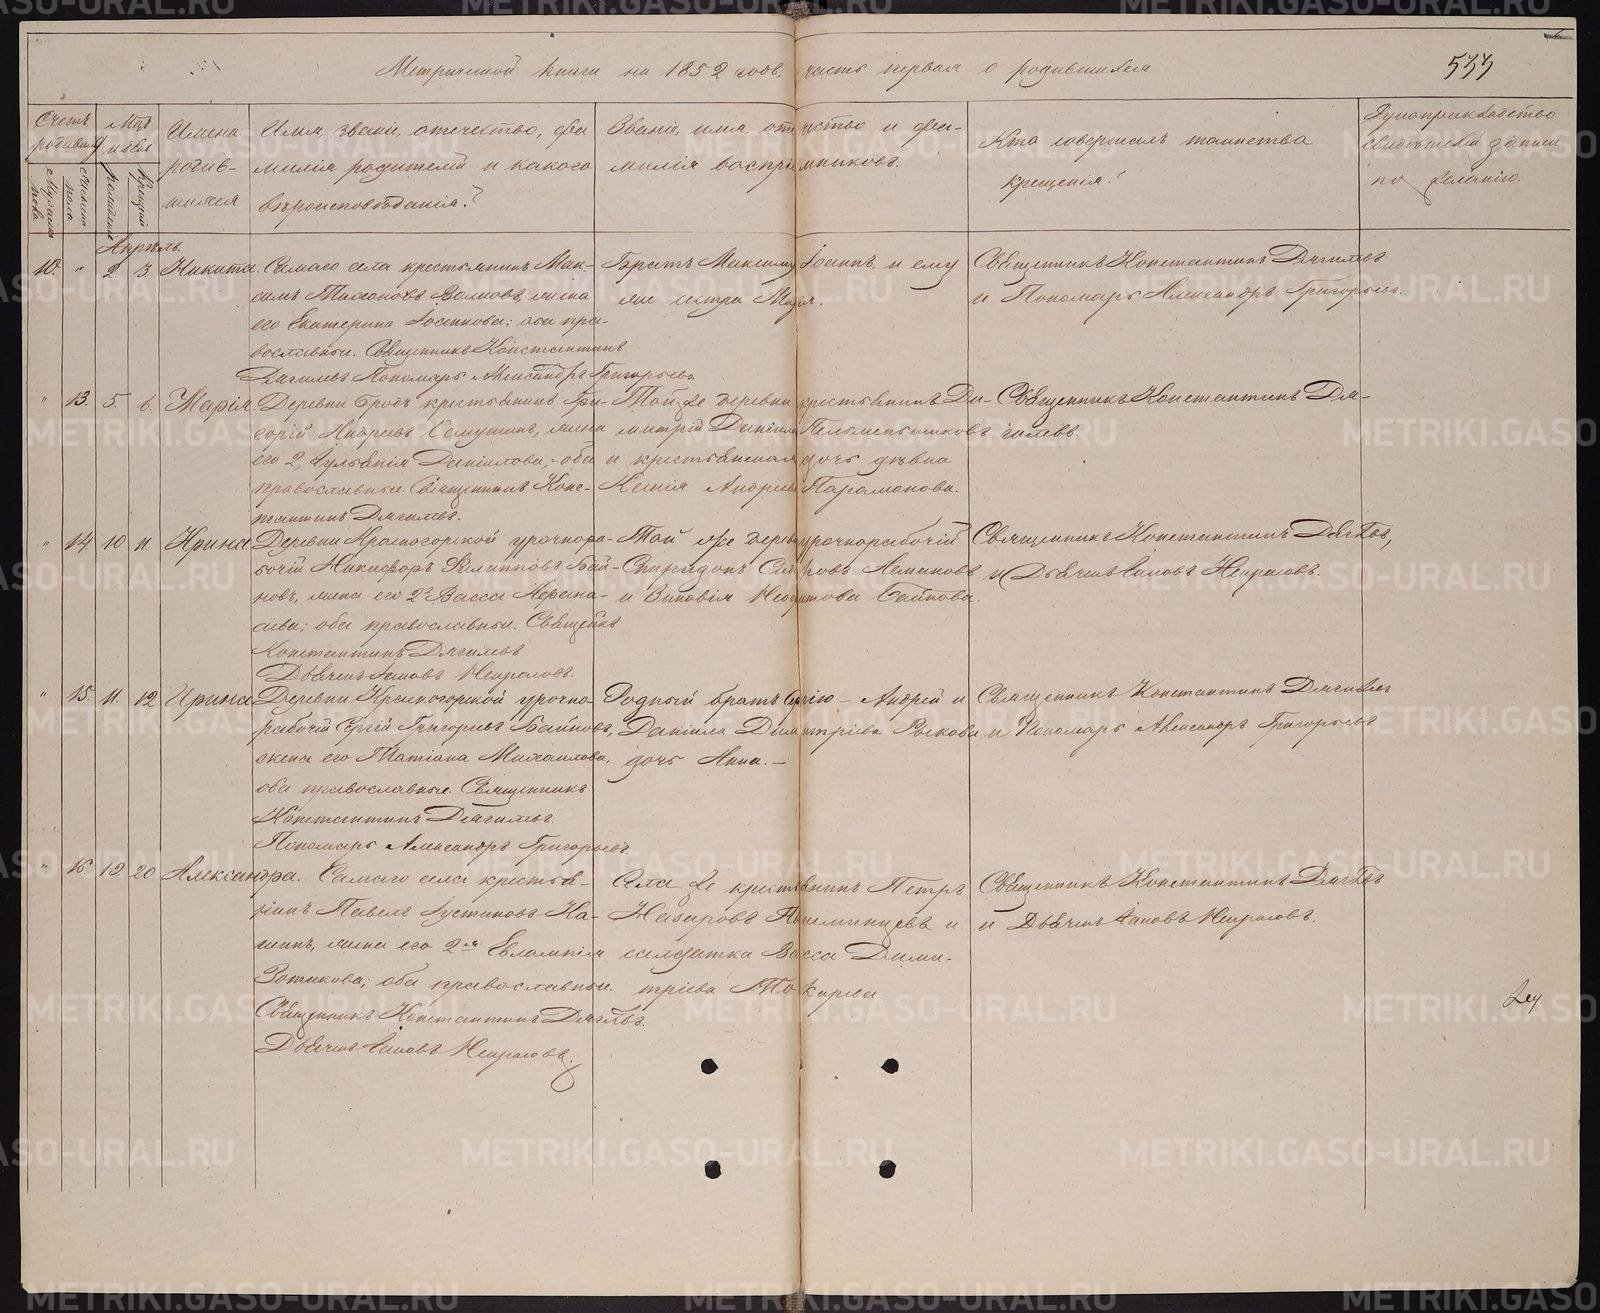 Метрической книги на 1852 годъ, часть первая о родившихся
577
Счетъ родившихся
Мужеска пола
Женска пола
Мѣс. и дни
рожденія
крещенія
Имена родив-
шихся
Имя, званіе, отечество, фа-
милія родителей и какого
вѣроисповѣданія?
Званіе, имя, отечество и фа-
милія воспріемниковъ.
Кто совершалъ таинство
крещенія?
Рукоприкладство
свидѣтелей записи
по желанію.
Апрѣль.
10. " 2. 3. Никита.
Самаго села крестьянинъ Мак-
симъ Тихоновъ Волковъ, жена
его Екатерина Іоаннова; оба пра-
вославные. Священникъ Константинъ
Дягилевъ Пономарь Александръ Григорьевъ.
Братъ Максиму Іоаннъ и ему
же сестра Марья.
Священникъ Константинъ Дягилевъ
и Пономарь Александръ Григорьевъ.
" 13. 5. 6. Марія.
Деревни Бродъ крестьянинъ Гри-
горій Андреевъ Семушинъ, жена
его 2, Іуліанія Даніилова, оба
православные. Священникъ Конс-
тантинъ Дягилевъ.
Той же деревни крестьянинъ Ди-
митрій Даніиловъ Пельменьщиковъ
и крестьянская дочь дѣвка
Ксенія Андреева Парамонова.
Священникъ Константинъ Дя-
гилевъ.
" 14 10 11. Ирина
Деревни Красногорской урочнора-
бочій Никифоръ Филипповъ Бай-
новъ, жена его 2я Васса Герас-
сива; оба православные. Священникъ
Константинъ Дягилевъ
Дьячекъ Іаковъ Некрасовъ.
Той же деревни урочнорабочій
Спиридонъ
и Зиновія Байнова.
Священникъ Константинъ Дягилевъ,
и Дьячекъ Іаковъ Некрасовъ.
" 15. 11. 12 Ирина
Деревни Красногорской урочно-
рабочій Сергій Григорьевъ Байновъ,
жена его Татіана Михаилова,
оба православные. Священникъ
Константинъ Дягилевъ.
Пономарь Александръ Григорьевъ.
Родный братъ Сергію – Андрей и
Даніила Димитріева Рыкова
дочь Анна. –
Священникъ Константинъ Дягилевъ
и Пономарь Александръ Григорьевъ
" 16. 19. 20 Александра.
Самаго села крестья-
нинъ Павелъ Іустиновъ Ка-
шинъ, жена его 2я Евлампія
Зотикова; оба православные.
Священникъ Константинъ Дягилевъ.
Дьячекъ Іаковъ Некрасовъ.
Села же крестьянинъ Петръ
Назаровъ и
солдатка Васса Дими-
тріева Токарева
Священникъ Константинъ Дягилевъ
и Дьячекъ Іаковъ Некрасовъ.
METRIKI.GASO-URAL.RU